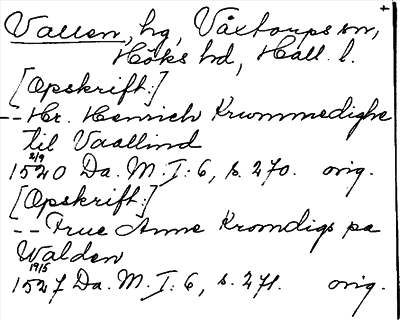 Vallen, hg, Våxtorps sn, +
Höks hd, Hall. l.
[Opskrift:]
-- Hr. Henrich Krummedighe
til Vaallind
2/9
1520 Da. M. I: 6, s. 270. orig.
[Opskrift:]
-- Frue Anne Kromdigs pa
Walden
19/5
1527 Da. M. I: 6, s. 271. orig.